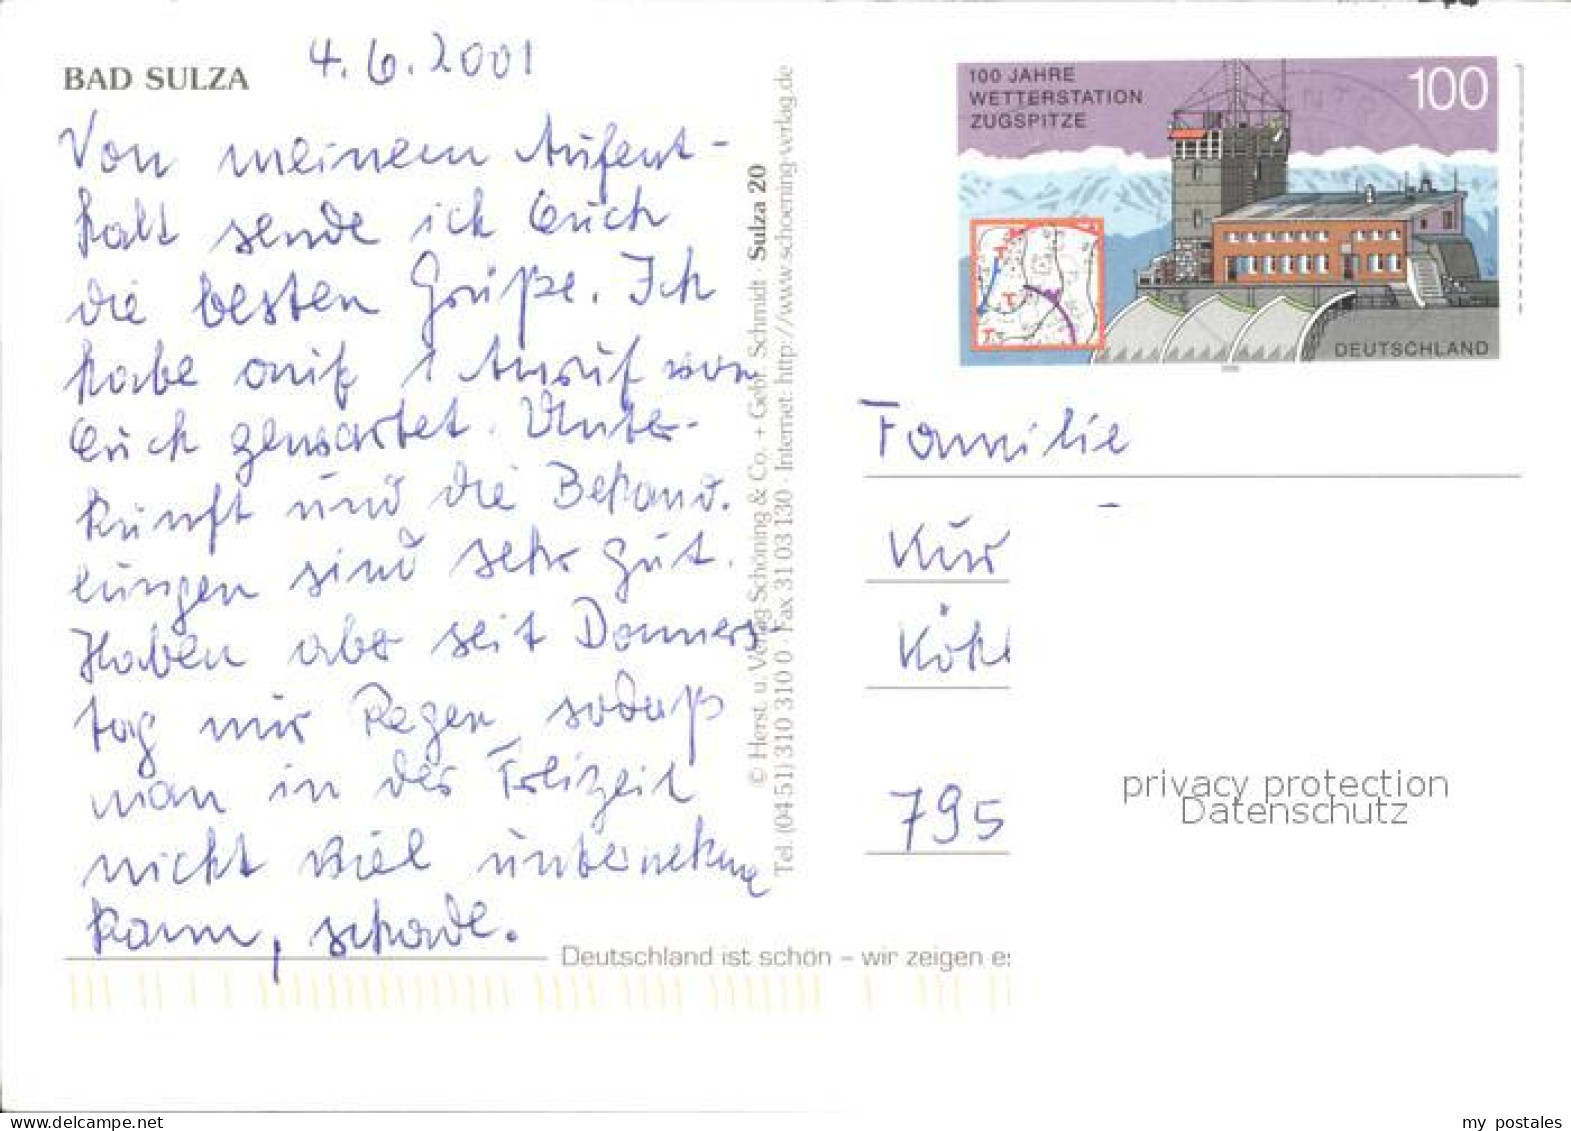 BAD SULZA
4.6.2001
Von meinem Aufent-
halt sende ich Euch
die besten Grüße. Ich
habe auf 1 Anruf von
Euch gewartet. Unter-
kunft und die Behand.
lungen sind sehr gut.
Haben aber seit Donners-
tag nur Regen, sodaß
man in der Freizeit
nicht viel unternehmen
kann, schade.
© Herst. u. Verlag Schöning & Co. + Gebr. Schmidt · Sulza 20
Tel. (04 51) 310 310 0 · Fax 31 03 130 · Internet: http://www.schoening-verlag.de
Deutschland ist schön – wir zeigen es
100 JAHRE
WETTERSTATION
ZUGSPITZE
100
DEUTSCHLAND
Familie
Kur
795
privacy protection
Datenschutz
www.delcampe.net
my_postales